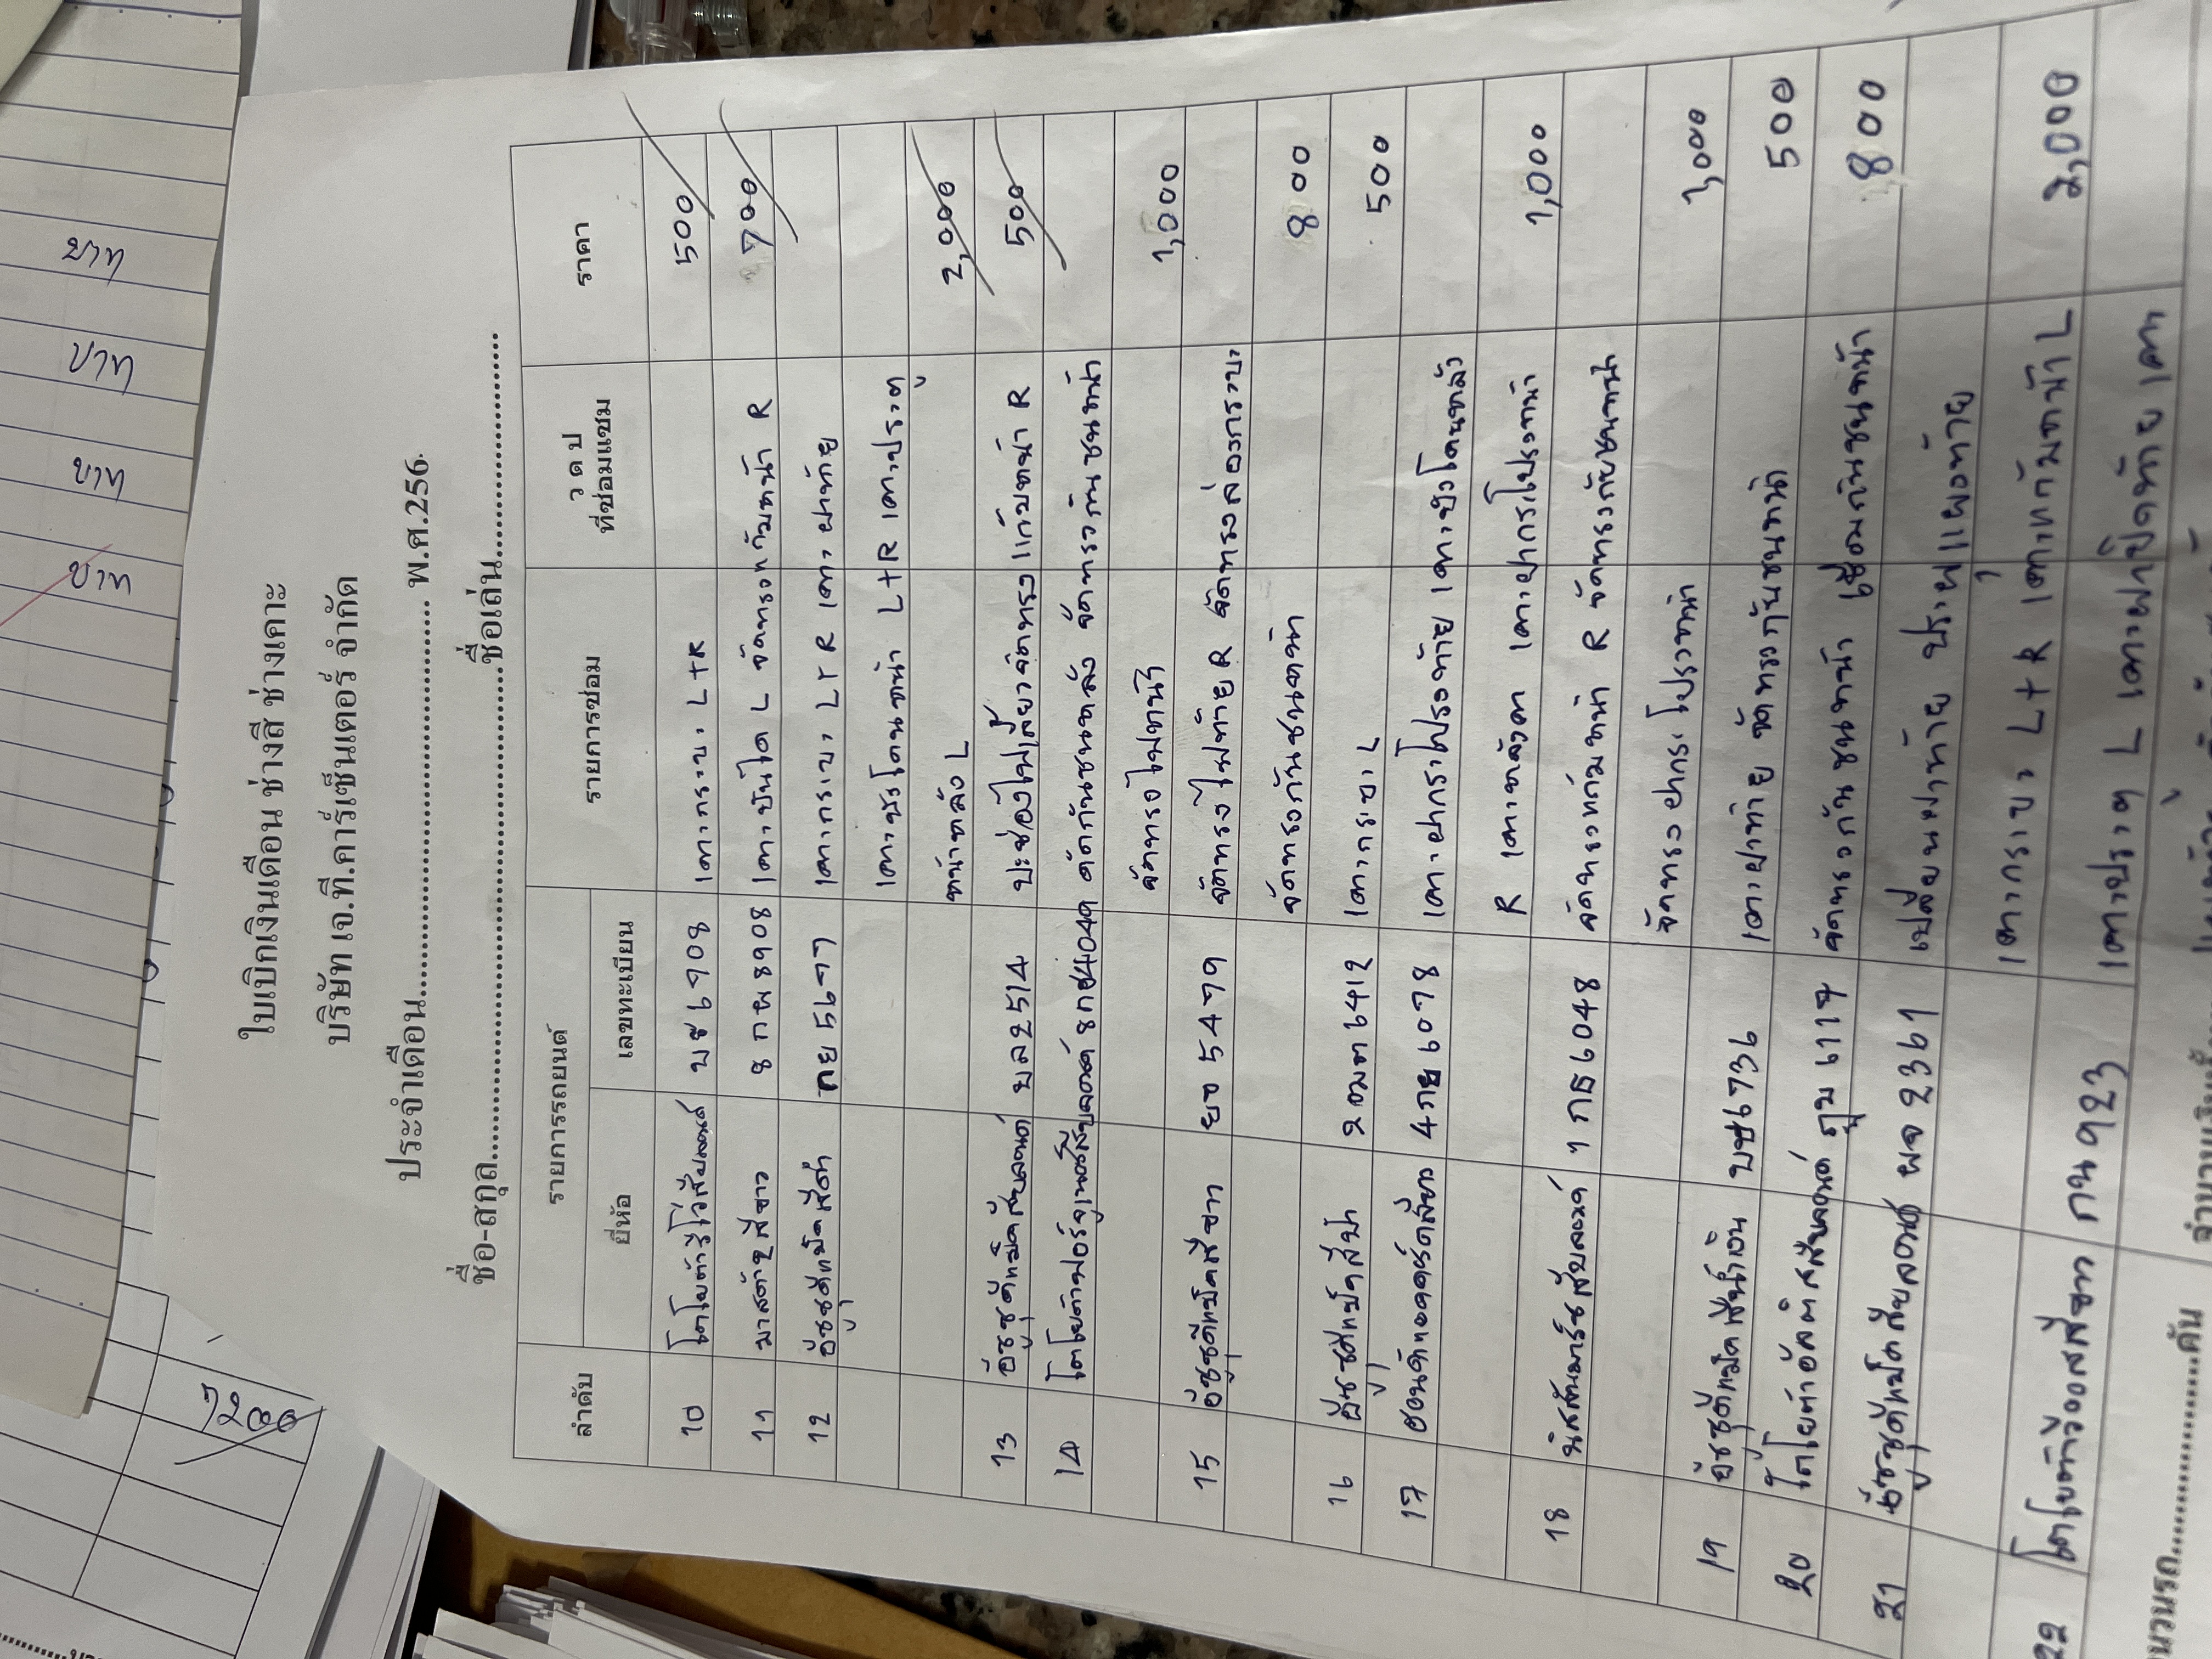 ใบเบิกเงินเดือน ช่างสี ช่างเคาะ
บริษัท เจ.ที.คาร์เซ็นเตอร์ จำกัด
ประจำเดือน.................................. พ.ศ.256
ชื่อ-สกุล..................................ชื่อเล่น..................................
ลำดับ รายการรถยนต์ รายการซ่อม ว ด ป ที่ซ่อมแซม ราคา
ยี่ห้อ เลขทะเบียน
10 โตโยต้ารีโว่สีบลอนด์ บช 6908 เคาะกระบะ L+R 500
11 มาสด้า2สีขาว 8 กผ 8908 เคาะบันได L จัดทรงแก้มหน้า R 700
12 อีซูซุดีแม็คสีดำ กย 5677 เคาะกระบะ L+R เคาะฝาท้าย
เคาะซุ้มโคนหน้า L+R เคาะประตู
หน้าหลัง L 2,000
13 อีซูซุดีแม็คสีบลอนด์ บล 2514 500
14 โตโยต้าฟอร์จูนเนอร์สีบลอนด์ 8 กช 4049 ดัดกันชนหลัง จัดทรงกันชนหน้า
จัดทรงไฟหน้า 1,000
15 อีซูซุดีแม็คสีขาว ยจ 5479 จัดทรงไฟท้าย R
จัดทรงกันชนหน้า 800
16 อีซูซุดีแม็คสีฟ้า 2 ฒฅ 6412 เคาะกระบะ L 500
17 ฮอนด้าแอคคอร์ดสีขาว 4 กย 6078 เคาะฝากระโปรงท้าย
R เคาะหลังคา เคาะฝากระโปรงหน้า 1,000
18 นิสสันมาร์ชสีบลอนด์ 1 กธ 6048 จัดทรงแก้มหน้า R จัดทรงกันชนหน้า
จัดทรงฝากระโปรงหน้า 1,000
19 อีซูซุดีแม็คสีน้ำเงิน บช 6736 เคาะฝาท้าย จัดทรงกันชนหน้า 500
20 โตโยต้าอัลติสสีบลอนด์ ฎม 6117 จัดทรงกันชนหน้า เชื่อมกันชนหน้า 800
21 อีซูซุดีแม็คสีบลอนด์ ผจ 2361 เปลี่ยนฝาท้าย
เคาะกระบะ L+R เคาะแก้มหน้า L 2,000
22 โตโยต้าวีออสสีขาว กน 923 เคาะประตู L
จำนวนรถ..................คัน จำนวนเงิน
บาท
บาท
บาท
บาท
7200